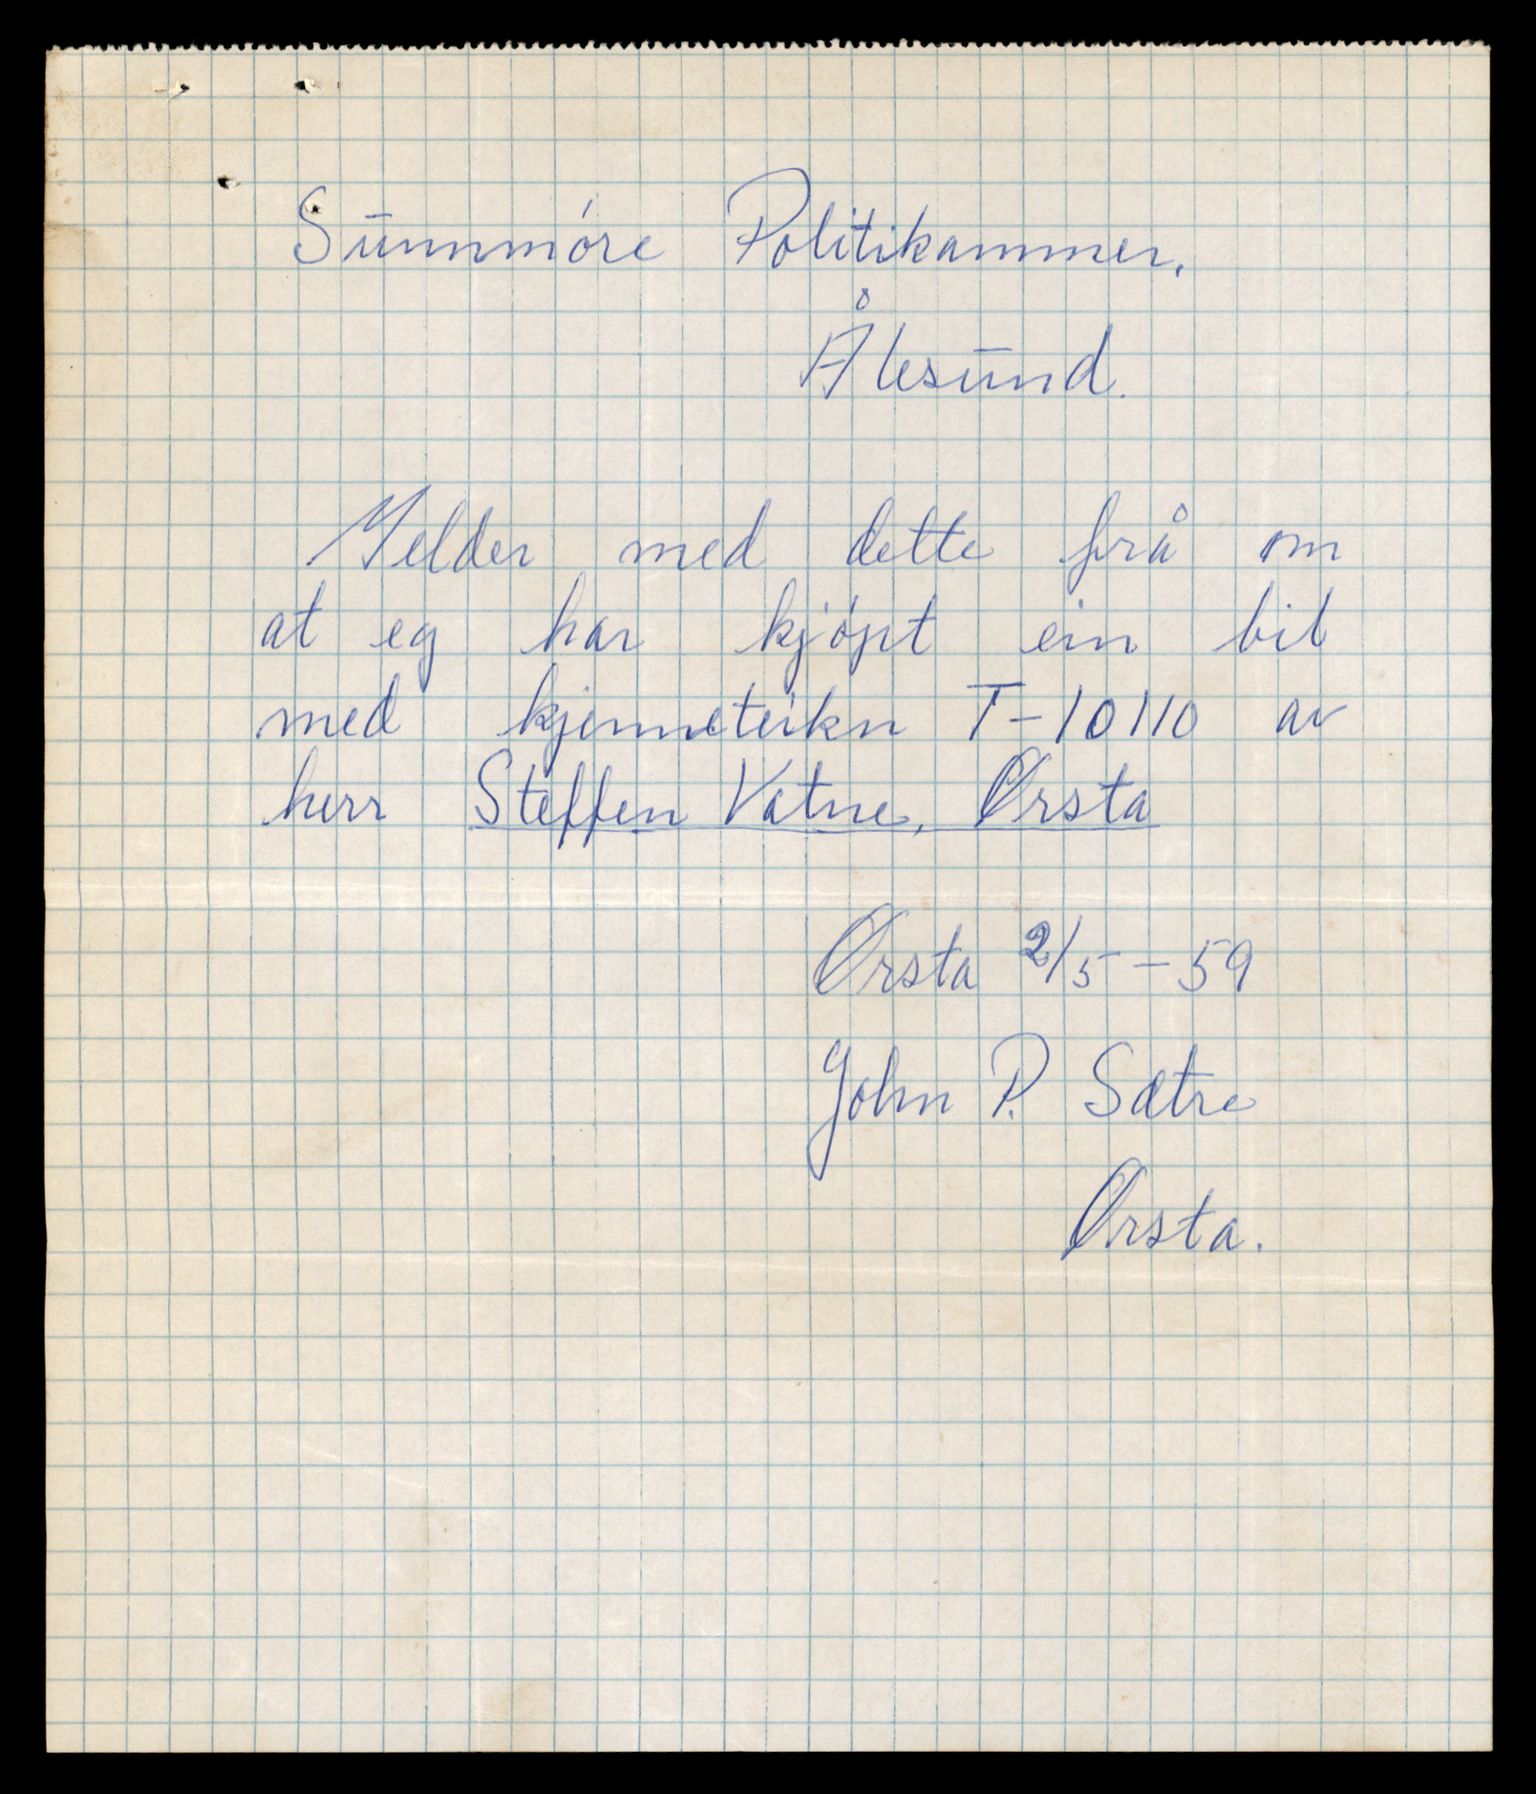 Sunnmóre Politikammer.
Ålesund.
Melder med dette frå om
at eg har kjópt ein bil
med kjenneteikn T-10110 av
herr Steffen Vatne, Ørsta
Ørsta 2/5-59
John P. Sætre
Ørsta.